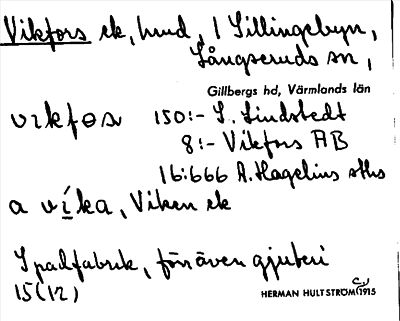 Vikfors ek, hmd, / Sillingebyn,
Långseruds sn,
Gillbergs hd, Värmlands län
vıkfɵs 150:- S. Lindstedt
8:- Vikfors AB
16:666 A. Hagelius sths
a víka, Viken ek
Spadfabrik, förr även gjuteri
15(12)
HERMAN HULTSTRÖM C.) 1915